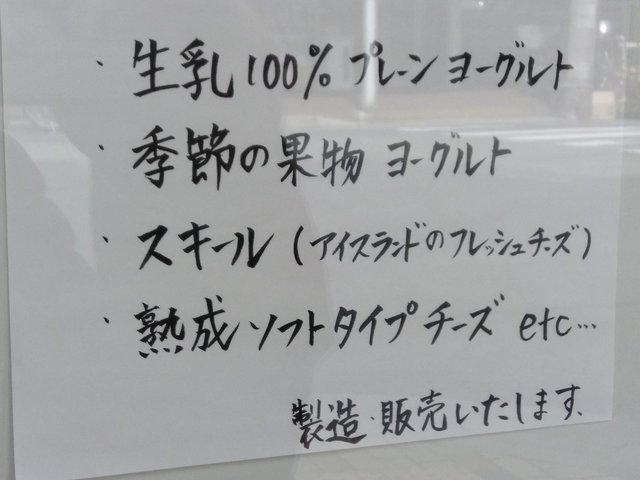 ・生乳100% プレーンヨーグルト
・季節の果物 ヨーグルト
・スキール(アイスランドのフレッシュチーズ)
・熟成ソフトタイプチーズ etc…
製造・販売いたします。